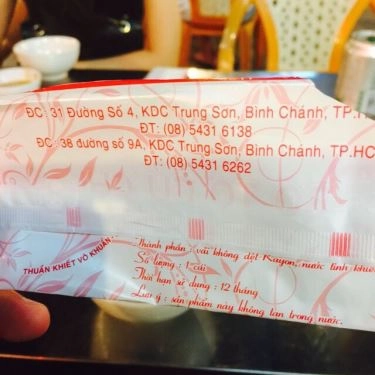 ĐC: 31 Đường Số 4, KDC Trung Sơn, Bình Chánh, TP.H
ĐT: (08) 5431 6138
ĐC: 38 đường số 9A, KDC Trung Sơn, Bình Chánh, TP.HC
ĐT: (08) 5431 6262
THUẦN KHIẾT VÔ KHUẨN
Thành phần : vải không dệt Rayon, nước tinh khiế
Số lượng : 1 cái
Thời hạn sử dụng : 12 tháng
Lưu ý : sản phẩm này không tan trong nước.